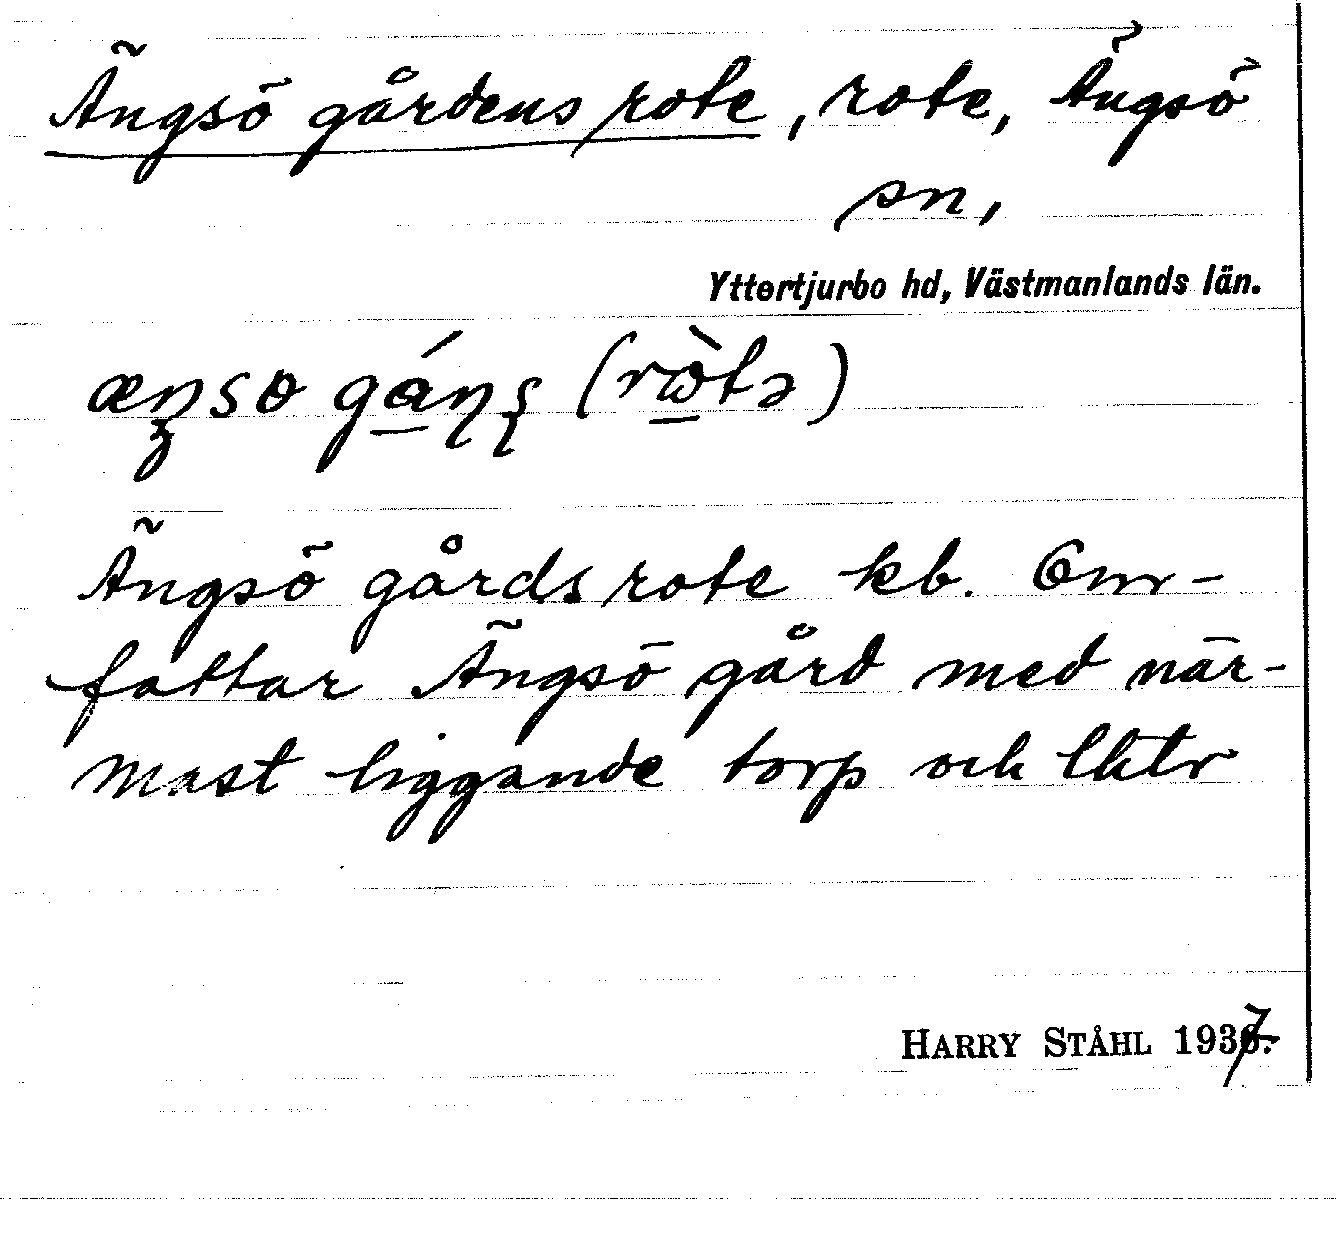 Ängsö gårdens rote, rote, Ängsö
sn,
Yttertjurbo hd, Västmanlands län.
(rὼtə)
Ängsö gårds rote kb. Om-
fattar Ängsö gård med när-
mast liggande torp och lhtr
HARRY STÅHL 1937.